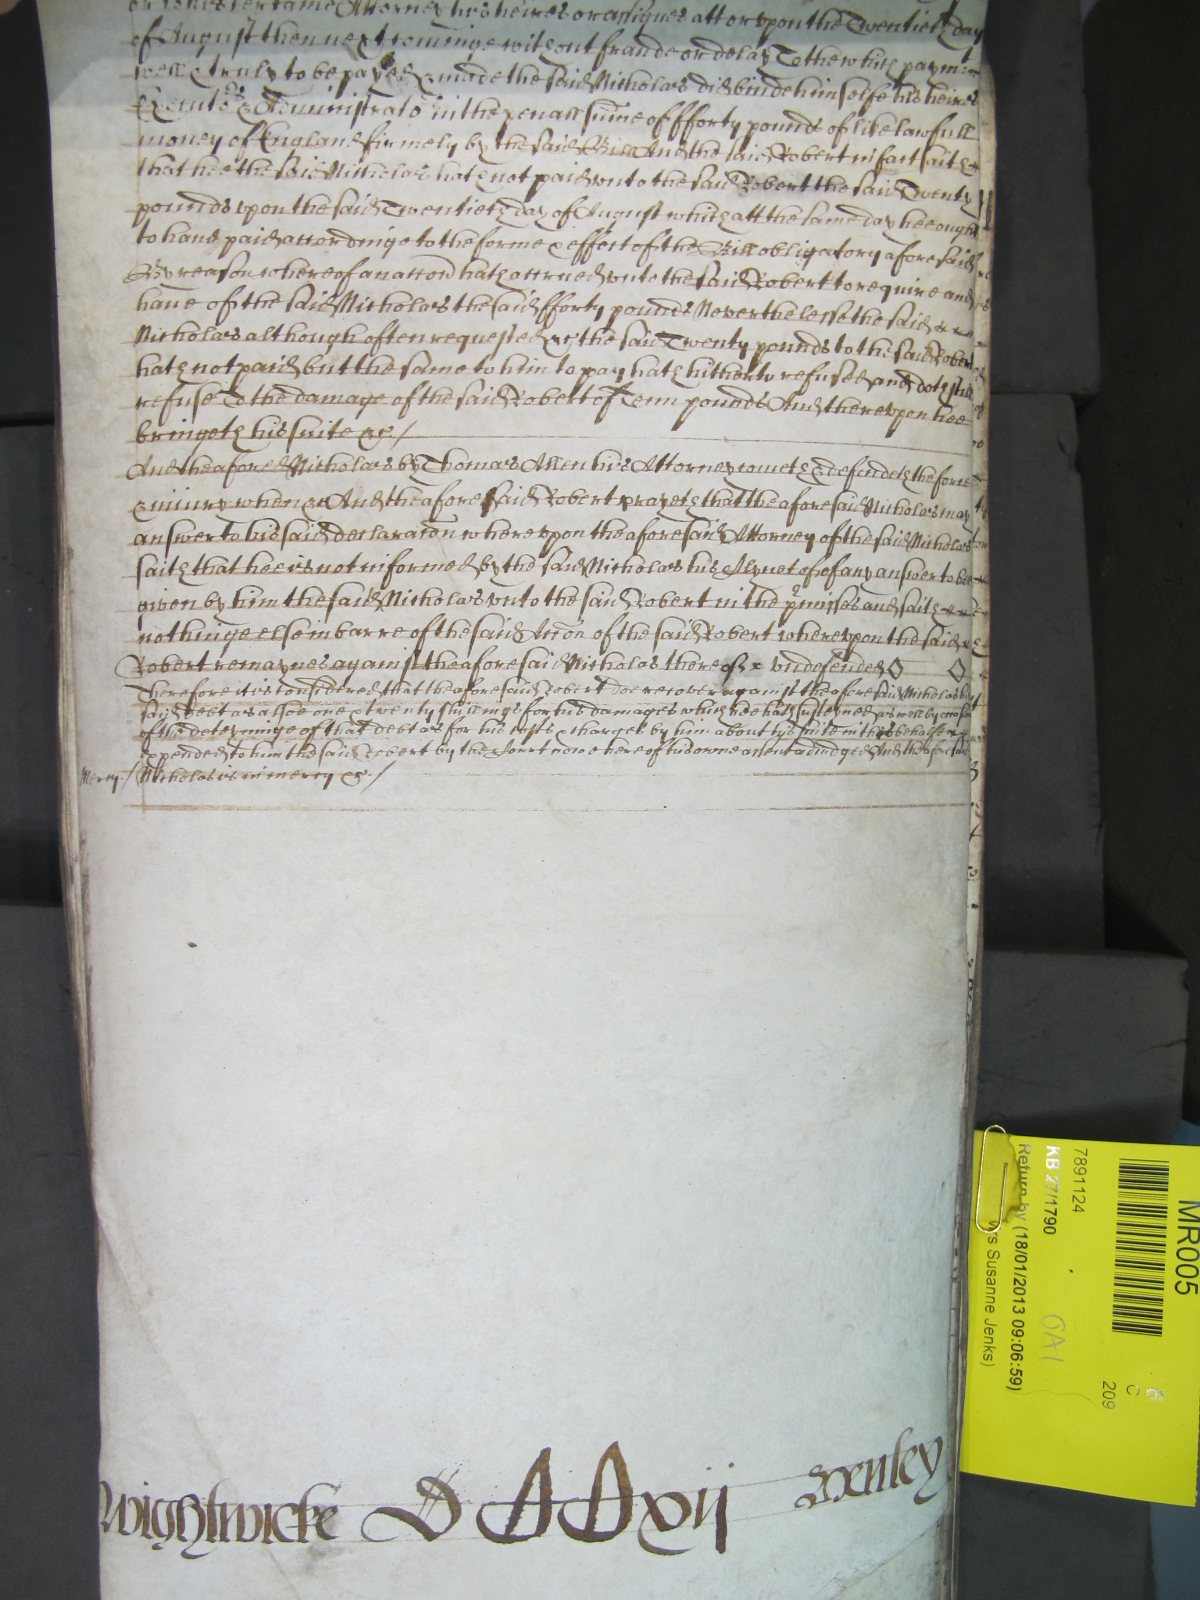 or to his certaine Attorney his heires or assignes att or upon the Twentieth day
of August then next cominge without fraude or delay To the which paymt
well & truly to be payed & made the said Nicholas did binde himselfe his heires
Executors & Administrators in the penall sume of fforty pounds of like lawfull
money of England firmely by the said Bill And the said Robert in fact saith
that hee the said Nicholas hath not paid unto the said Robert the said Twenty
pounds upon the said Twentieth day of August which att the same day hee ought
to have paid accordinge to the forme & effect of the Bill obligatory aforesaid
By reason whereof an accon hath accrued unto the said Robert to require and
have of the said Nicholas the said fforty pounds Neverthelesse the said
Nicholas although often requested &c the said Twenty pounds to the said Robert
hath not paid but the same to him to pay hath hitherto refused and doth still
refuse To the damage of the said Robert of Tenn pounds And thereupon hee
bringeth his suite &c /
And the afored Nicholas by Thomas Allen his Attorney cometh & defendeth the force
& iniury when &c And the aforesaid Robert prayeth that the aforesaid Nicholas may
answer to his said declaracon whereupon the aforesaid Attorney of the said Nicholas
saith that hee is not informed by the said Nicholas his of any answer to bee
given by him the said Nicholas unto the said Robert in the pmisses and saith
nothinge else in barre of the said Accon of the said Robert whereupon the said
Robert remaynes against the aforesaid Nicholas thereof &c undefended
Therefore it is considered that the aforesaid Robert doe recover against the aforesaid Nicholas his
said debt as alsoe one & twenty shillings for his damages which hee hath susteyned as well by
of the deteyninge of that debt as for his costs & charges by him about his suite in this behalfe
expended to him the said Robert by the Court nowe here of his owne assent adiudged And the
Mercy / Nicholas is in mercy &c /
Wightwicke D xij Henley
MR005
7891124
KB 27/1790
Return by (18/01/2013 09:06:59)
Mrs Susanne Jenks)
209
C